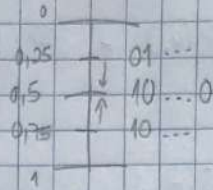 0
0,25 01...
0,5 10...0
0,75 10...
1